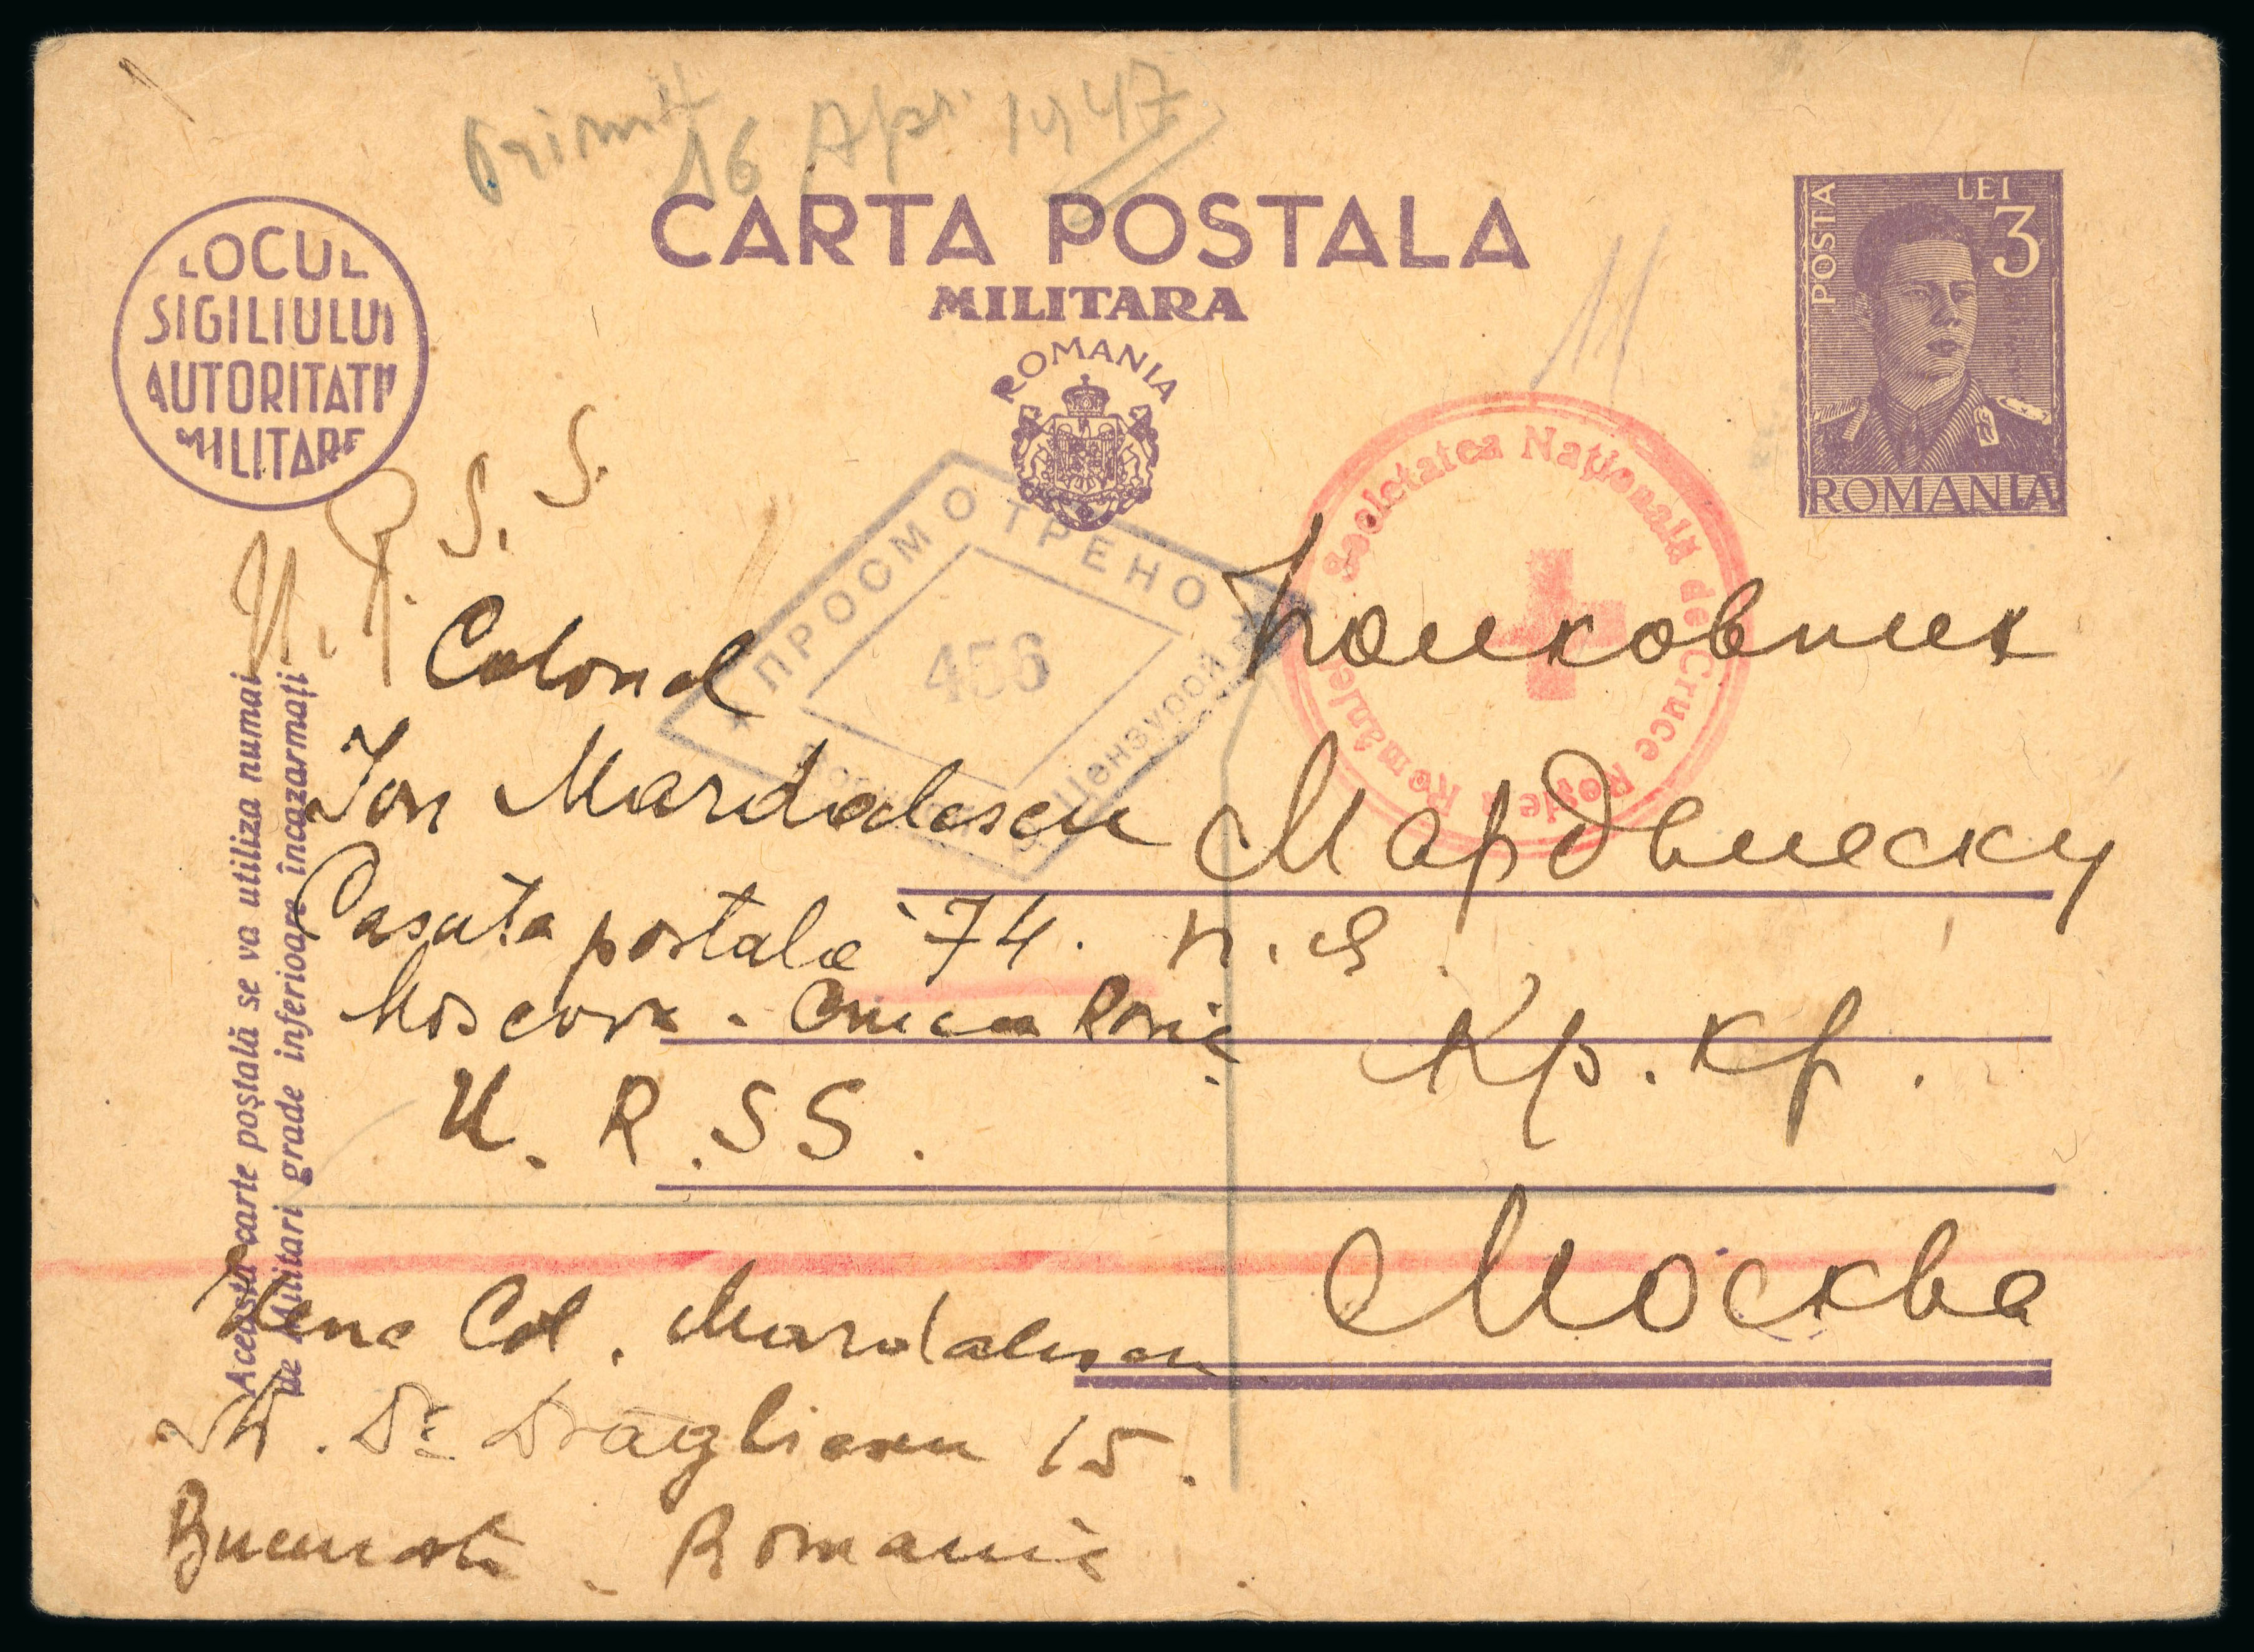 Primit 16 Apr. 1947
CARTA POSTALA
MILITARA
ROMANIA
LOCUL
SIGILIULUI
AUTORITATII
MILITARE
POSTA
LEI
3
ROMANIA
U. R. S. S.
ПРОСМОТРЕНО
456
Цензурой
Societatea Națională de Cruce Roșie a României
Colonel
Ion Mardalescu
Casuta postala 74.
Moscova - Crucea Rosie
U. R. S S.
Полковник
Мардалеску
п. я.
Кр. Кр.
Москва
Această carte poștală se va utiliza numai
de Militari grade inferioare încazarmați
Col. Mardalescu
Str. Dr. 15.
Bucuresti - Romania